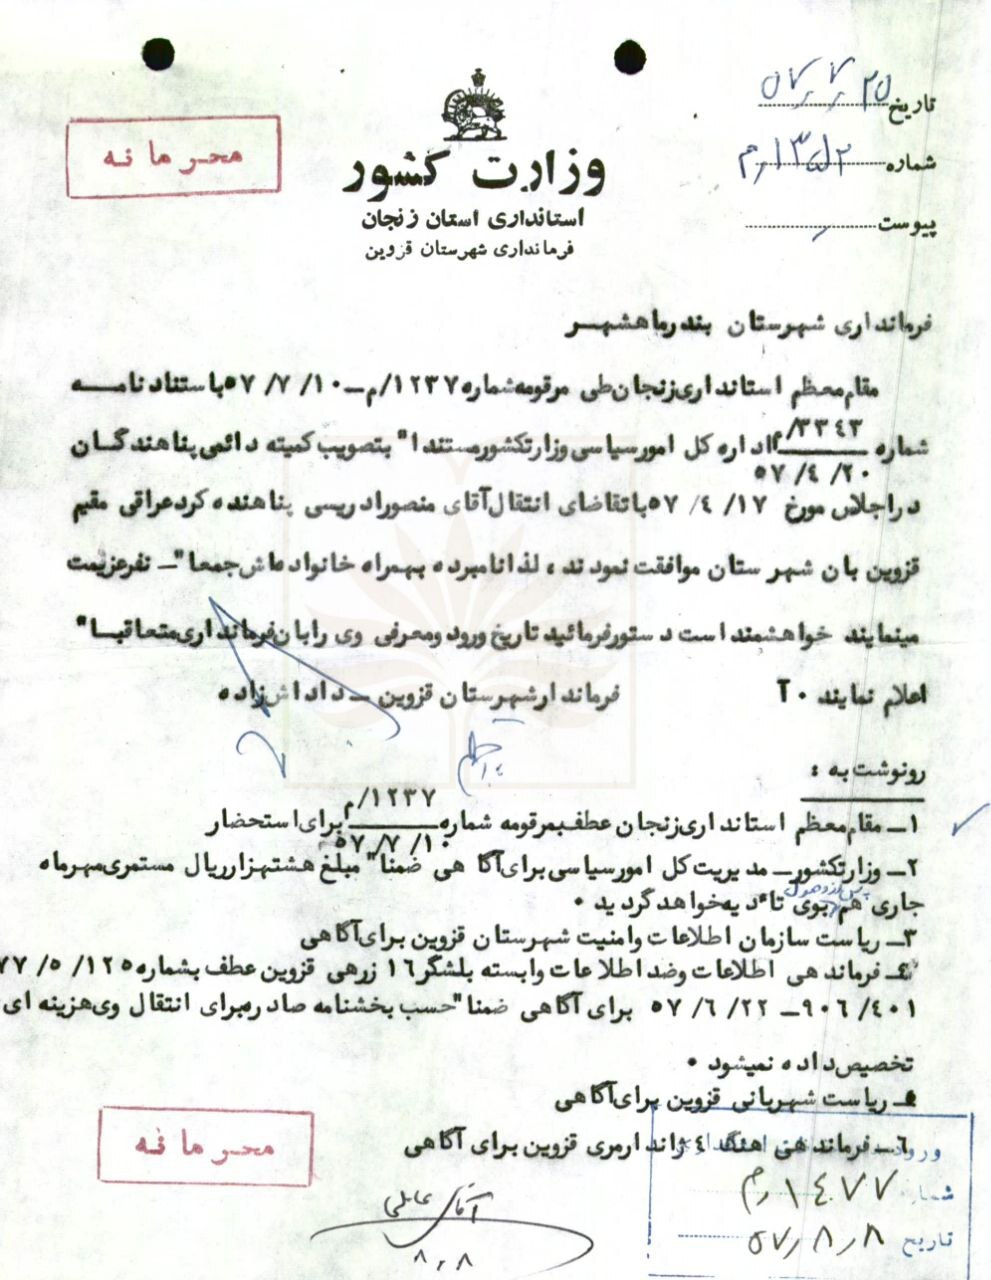 تاریخ ۵۷/۷/۲۵
محرمانه
شماره
وزارت کشور
استانداری استان زنجان
پیوست
فرمانداری شهرستان قزوین
فرمانداری شهرستان بندرماهشهر
مقام معظم استانداری زنجان طی مرقومه شماره ۱۲۳۷/م ـ ۵۷/۷/۱۰ با ستناد نامه
شماره ۳۳۴۳/م ۵۷/۴/۲۰ اداره کل امور سیاسی وزارتکشور مستندا" بتصویب کمیته دائمی پناهندگان
در اجلاس مورخ ۵۷/۴/۱۷ با تقاضای انتقال آقای منصور ادریسی پناهنده کرد عراقی مقیم
قزوین بان شهرستان موافقت نمودند ، لذا نامبرده بهمراه خانواده اش جمعا" ـ نفر عزیمت
مینمایند خواهشمند است دستور فرمائید تاریخ ورود و معرفی وی را بان فرمانداری متعاقبا"
اعلام نمایند ۰ آ
فرماندار شهرستان قزوین ـ داداش زاده
رونوشت به :
۱ـ مقام معظم استانداری زنجان عطف بمرقومه شماره ۱۲۳۷/م ۵۷/۷/۱۰ برای استحضار
۲ـ وزارتکشور ـ مدیریت کل امور سیاسی برای آگاهی ضمنا" مبلغ هشتهزار ریال مستمری مهرماه
جاری هم بوی تادیه خواهد گردید ۰
۳ـ ریاست سازمان اطلاعات و امنیت شهرستان قزوین برای آگاهی
۴ـ فرماندهی اطلاعات و ضد اطلاعات وابسته بلشگر ۱۶ زرهی قزوین عطف بشماره ۱۲۵/۵/۷۷
۹۰۶/۴۰۱ ـ ۵۷/۶/۲۲ برای آگاهی ضمنا" حسب بخشنامه صادره برای انتقال وی هزینه ای
تخصیص داده نمیشود ۰
۵ـ ریاست شهربانی قزوین برای آگاهی
۶ـ فرماندهی هنگ ۴ ژاندارمری قزوین برای آگاهی
محرمانه
شماره ۱۴۷۷/م
تاریخ ۵۷/۸/۸
آقای عاملی
۸/۸